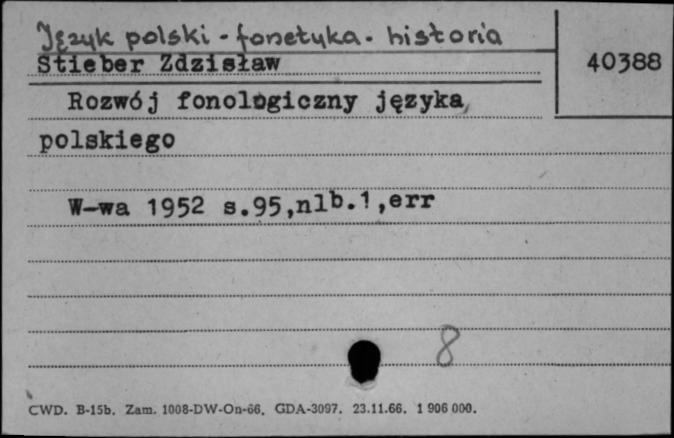 Język polski - fonetyka - historia
Stieber Zdzisław
40388
Rozwój fonologiczny języka
polskiego
W-wa 1952 s.95,nlb.1,err
8
CWD. B-15b. Zam. 1008-DW-On-66. GDA-3097. 23.11.66. 1 906 000.